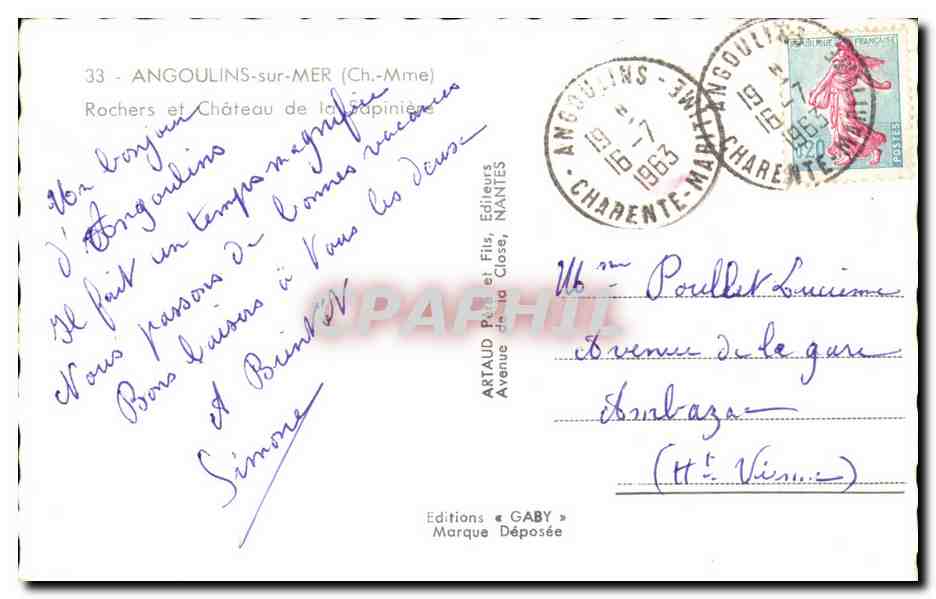 33 - ANGOULINS-sur-MER (Ch.-Mme)
Rochers et Château de la Sapinière
Un bonjour
d'Angoulins
Il fait un temps magnifique
Nous passons de bonnes vacances
Bons baisers à Vous les deux
A Bientôt
Simone
ARTAUD Père et Fils, Editeurs
Avenue de la Close, NANTES
Editions « GABY »
Marque Déposée
CPAPHIL
ANGOULINS
19 H
16 -7
1963
CHARENTE-MARITIME
ANGOULINS
19 H
16 -7
1963
CHARENTE-MARITIME
REPUBLIQUE FRANÇAISE
0,20
POSTES
Mme Poullet Lucienne
Avenue de la gare
Ambazac
(Hte Vienne)